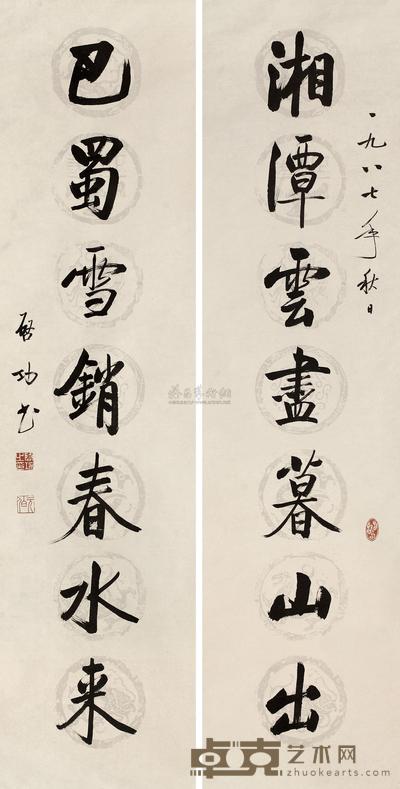 湘潭雲盡暮山出
一九八七年秋日
巴蜀雪銷春水来
启功书
卓克艺术网
www.zhuokearts.com